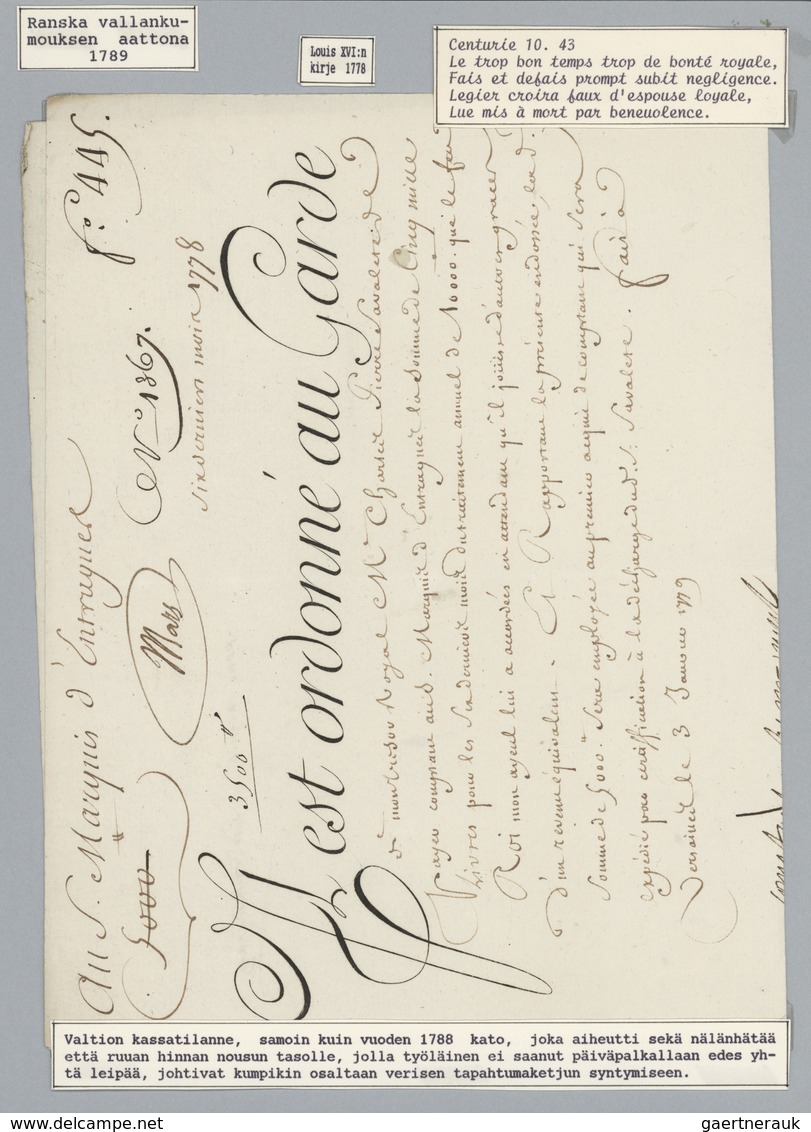 Ranska vallanku-
mouksen aattona
1789
Louis XVI:n
kirje 1778
Centurie 10. 43
Le trop bon temps trop de bonté royale,
Fais et defais prompt subit negligence.
Legier croira faux d'espouse loyale,
Lue mis à mort par beneuolence.
Au S. Marquis d'Entragues
5000
Mars
N.º 1367.
f.º 445.
3500
six derniers mois 1778
Il est ordonné au Garde
de mon tresor Royal M.e Charles Pierre Savalete de
payer comptant au S. Marquis d'Entragues la somme de Cinq mille
Livres pour les six derniers mois du traitement annuel de 10000. que le feu
Roi mon ayeul lui a accordées en attendant qu'il jouisse d'autres graces
d'un revenu équivalent. Et Rapportant la présente endossée, lad.
somme de 5000.# sera employée au premier acquit de comptant qui sera
expédié par certification à la décharge dud. S. Savalete. fait à
Versailles le 3 Janvier 1779
Valtion kassatilanne, samoin kuin vuoden 1788 kato, joka aiheutti sekä nälänhätää
että ruuan hinnan nousun tasolle, jolla työläinen ei saanut päiväpalkallaan edes yh-
tä leipää, johtivat kumpikin osaltaan verisen tapahtumaketjun syntymiseen.
gaertnerauk